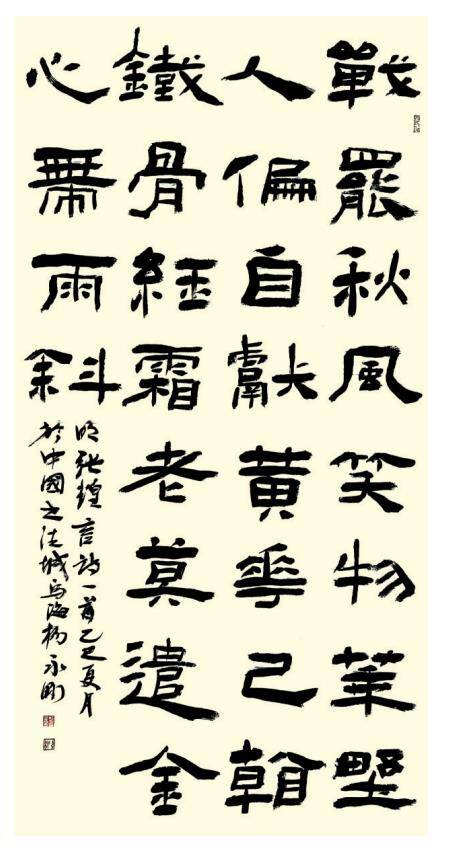 戰罷秋風笑物華野
人偏自獻黃花已看
鐵骨經霜老莫遣金
心帶雨斜
明張煌言詩一首乙巳夏月
於中國書法城烏海楊永剛